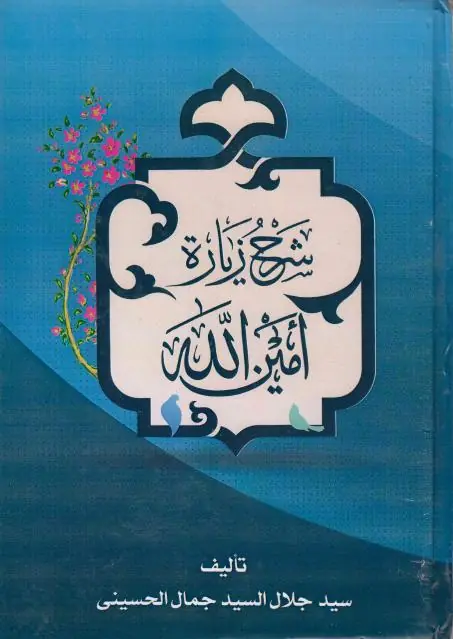 شرح زيارة
أمين الله
تأليف
سيد جلال السيد جمال الحسينى